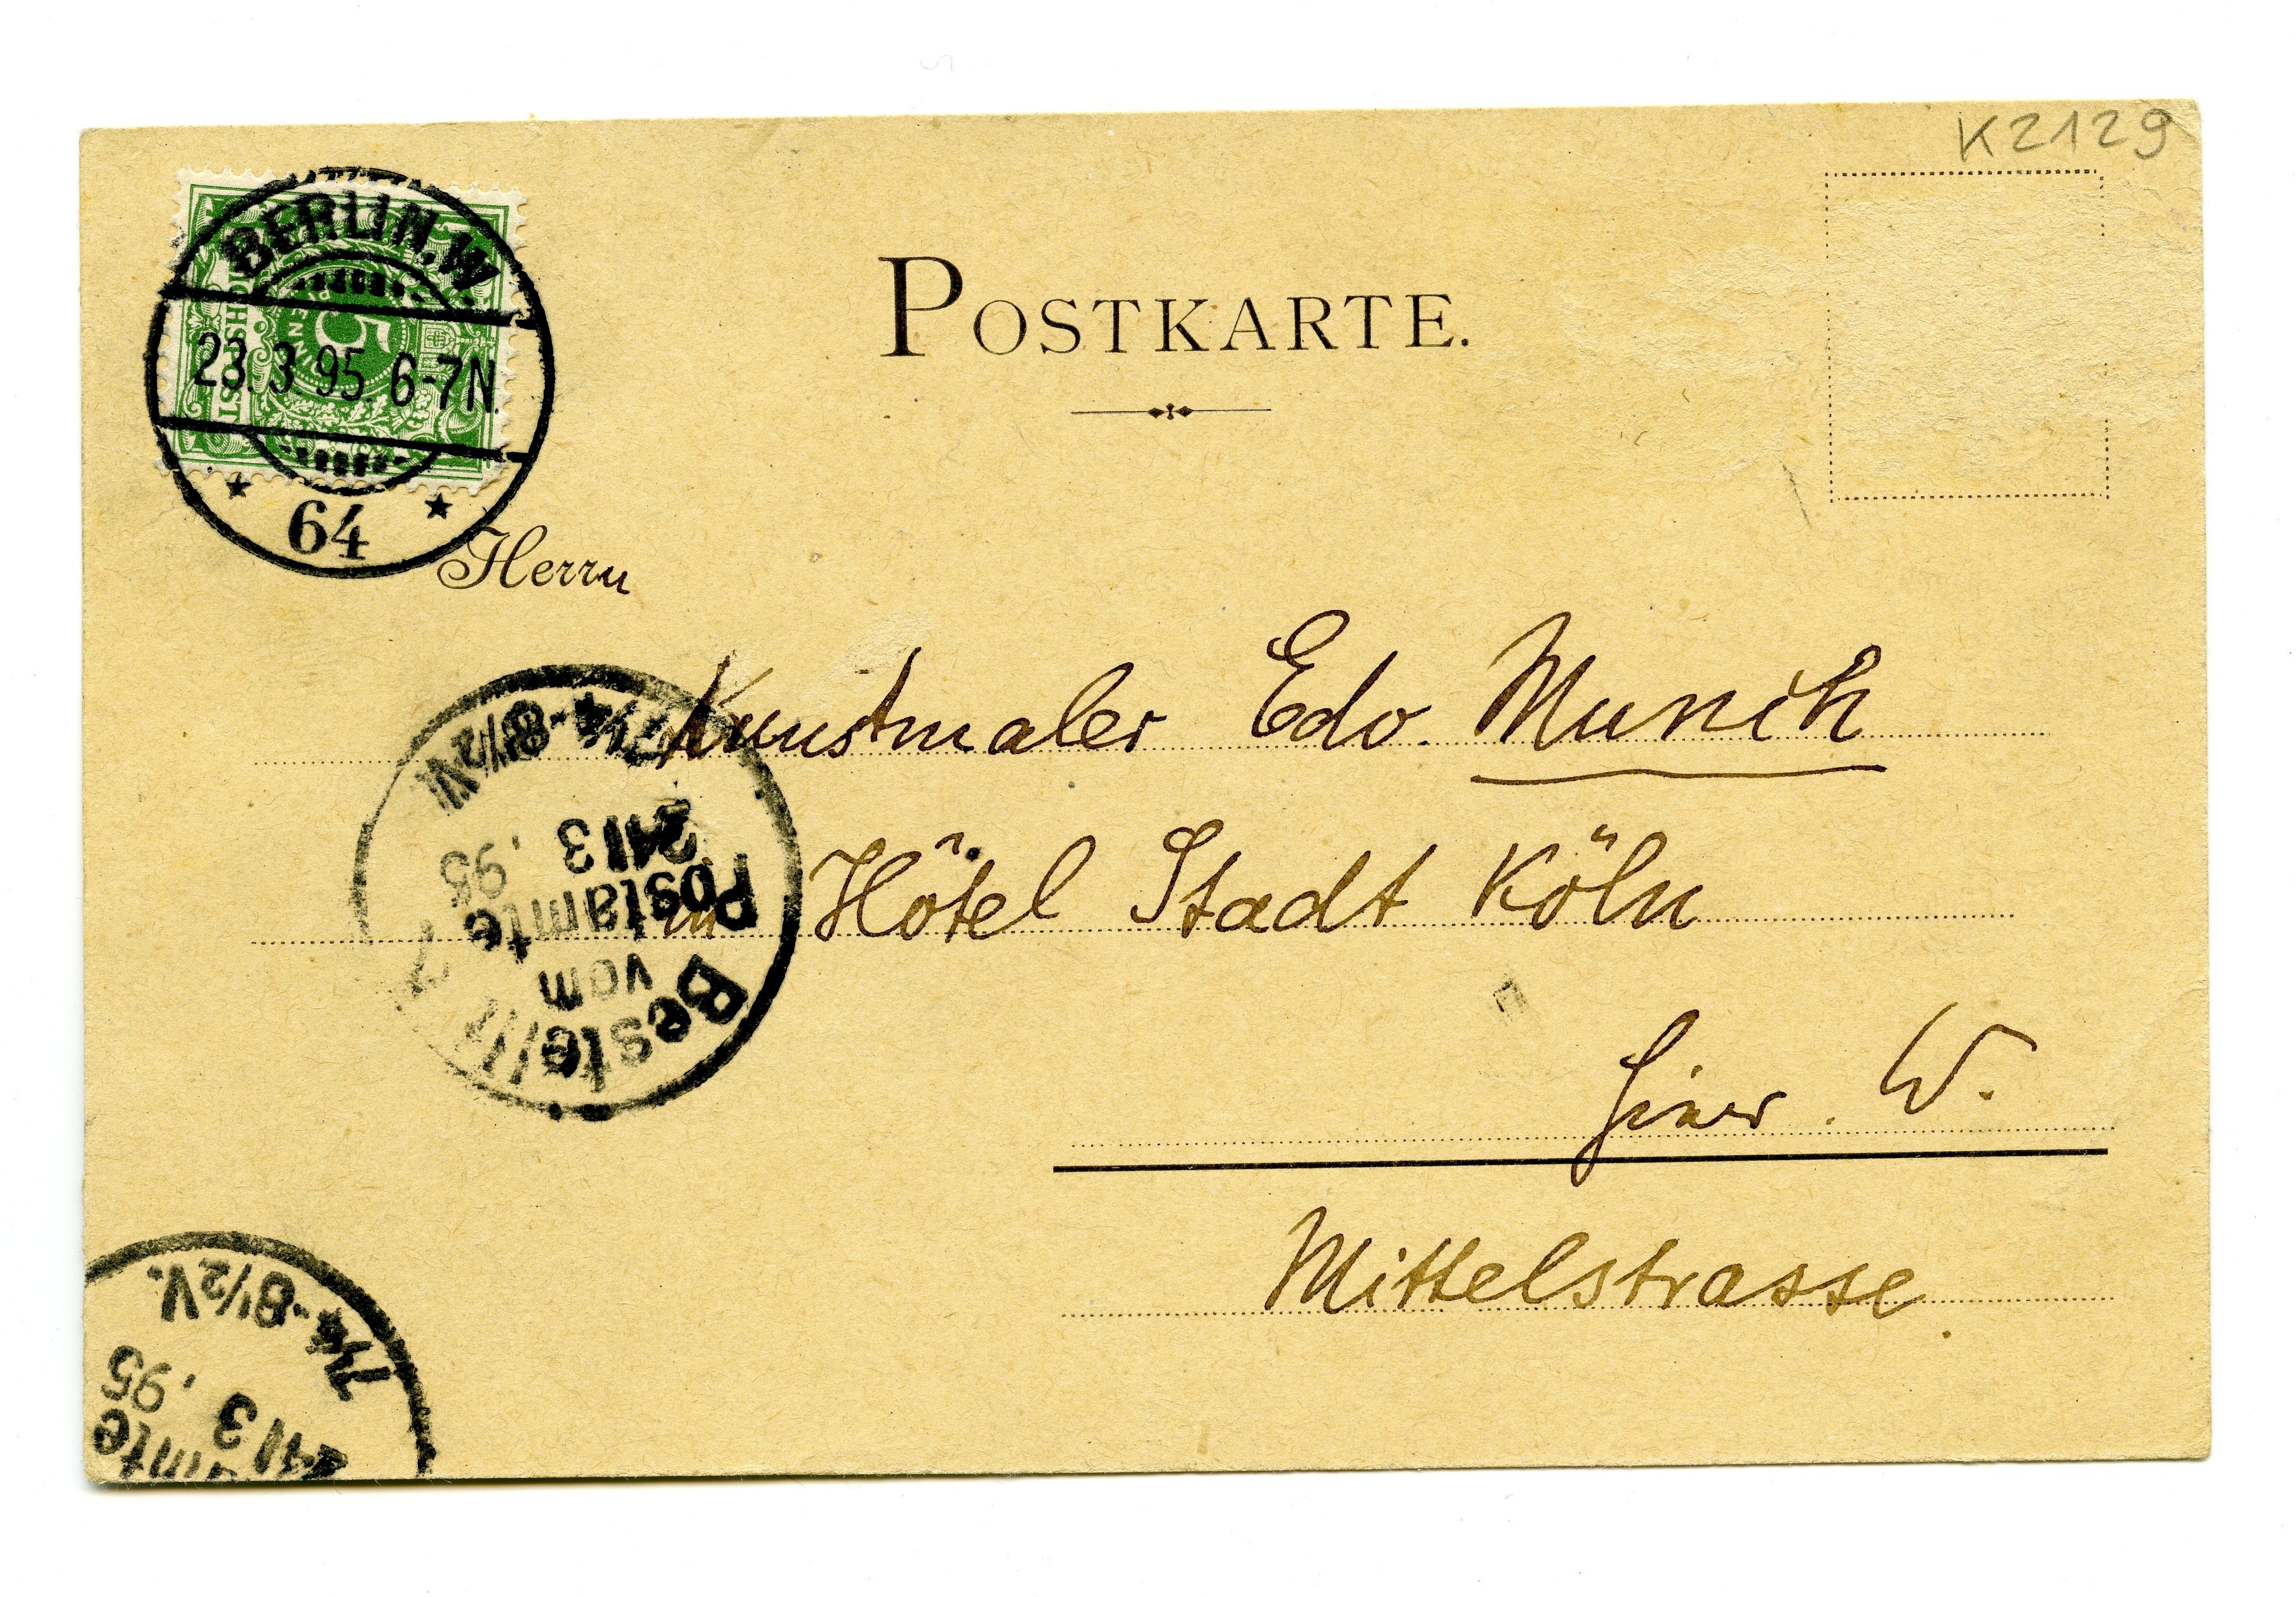 K2129
BERLIN.W.
23.3.95.6-7N.
64
5
POSTKARTE.
Herrn
Kunstmaler Edv. Munch
in Hôtel Stadt Köln
hier. W.
Mittelstrasse.
Bestellt
vom
Postamte 7
24/3
.95
7¼-8½V.
7¼-8½V.
.95
24/3
amte